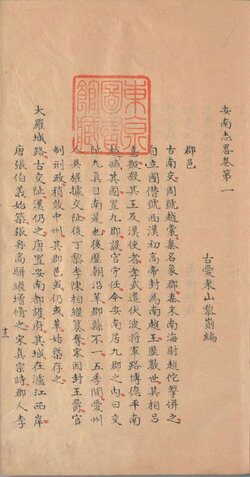 安南志畧卷第一
古愛東山黎崱編
郡邑
古南交周號越裳秦名象郡秦末南海尉趙佗擊併之
自立國僭號西漢初高帝封為南越王歷數世其相吕
嘉叛殺其王及漢使者孝武遣伏波將軍路博德平南
越滅其國置九郡設官守任今安南居九郡之内曰交
趾九真日南是也後歷朝沿革郡縣不一五季間愛州
人吳權據交趾後丁黎李陳相繼簒奪宋因封王爵官
制刑政稍效中州其郡邑或仍或革姑槩存之
大羅城路古交趾漢仍之唐置安南都護府其城在瀘江西岸
唐張伯義始築張舟高駢繼增脩之宋真宗時郡人李
東京圖書館藏